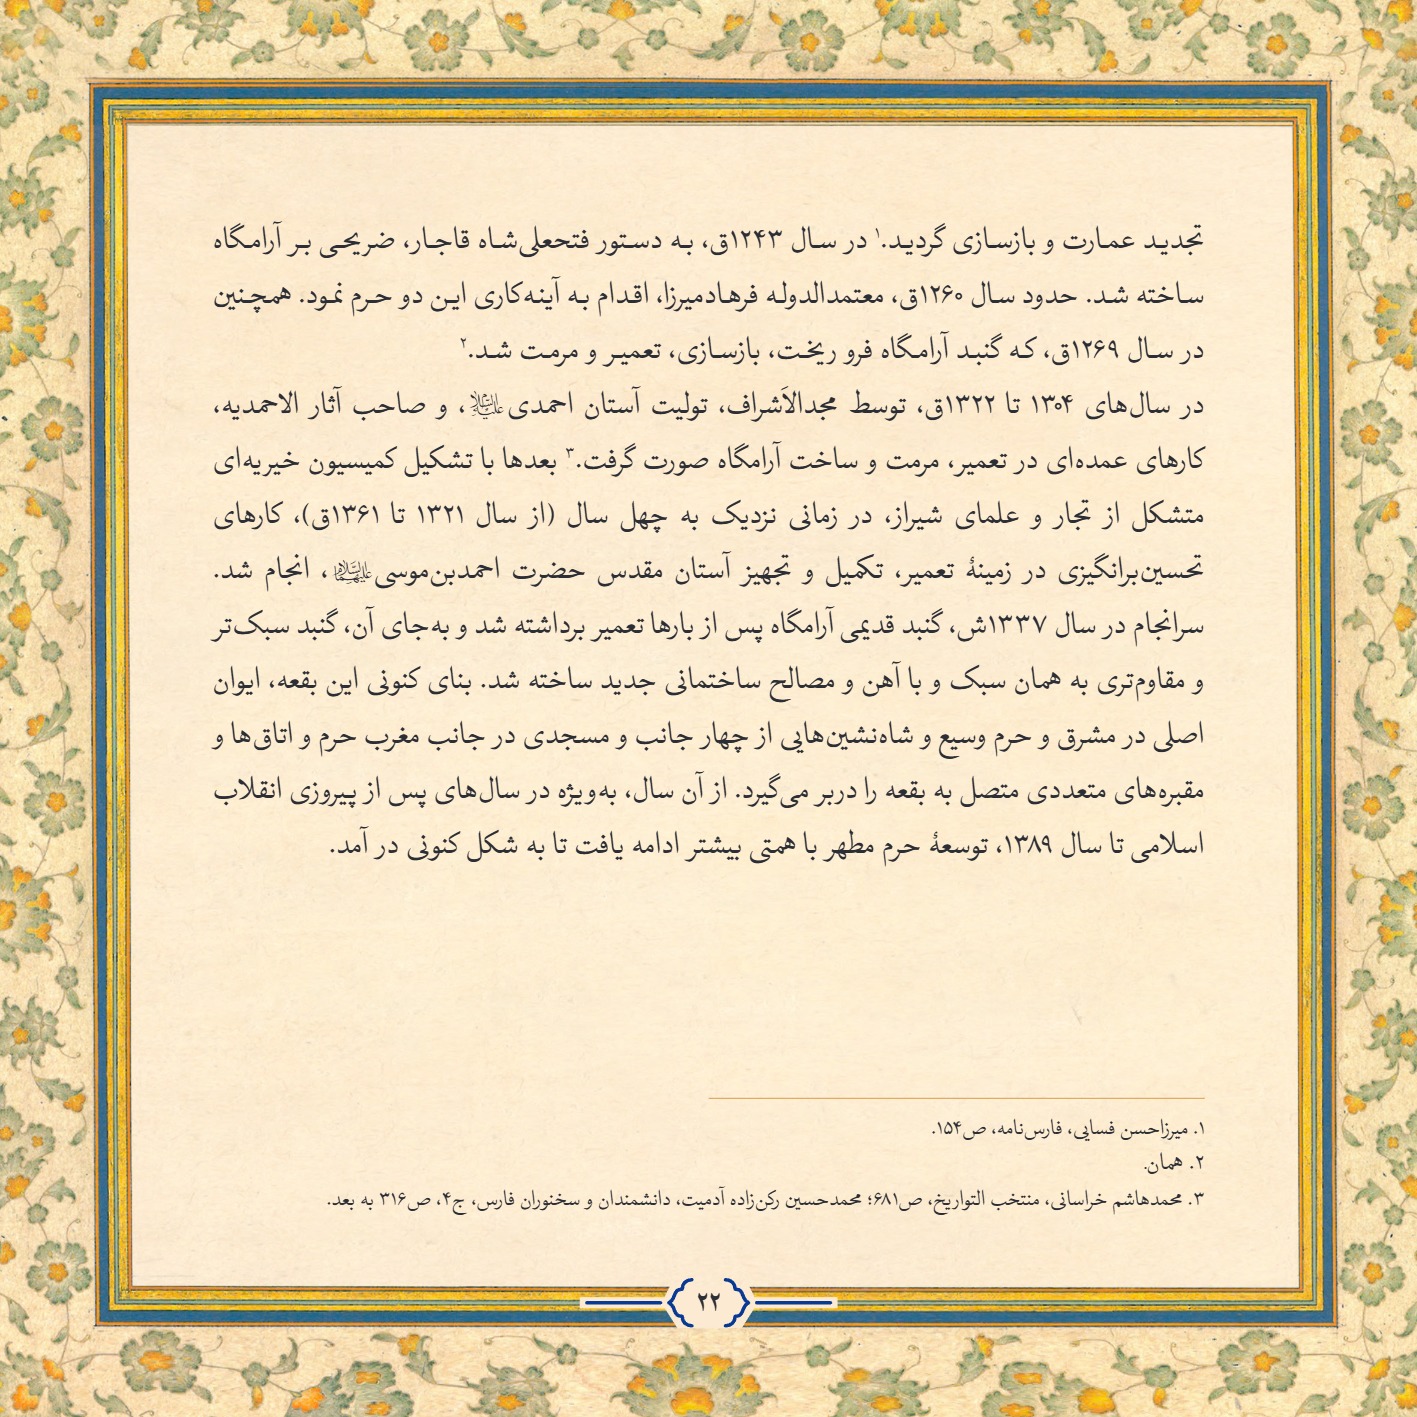 تجدید عمارت و بازسازی گردید.۱ در سال ۱۲۴۳ق، به دستور فتحعلی‌شاه قاجار، ضریحی بر آرامگاه
ساخته شد. حدود سال ۱۲۶۰ق، معتمدالدوله فرهادمیرزا، اقدام به آینه‌کاری این دو حرم نمود. همچنین
در سال ۱۲۶۹ق، که گنبد آرامگاه فرو ریخت، بازسازی، تعمیر و مرمت شد.۲
در سال‌های ۱۳۰۴ تا ۱۳۲۲ق، توسط مجدالاَشراف، تولیت آستان احمدی علیه‌السلام، و صاحب آثار الاحمدیه،
کارهای عمده‌ای در تعمیر، مرمت و ساخت آرامگاه صورت گرفت.۳ بعدها با تشکیل کمیسیون خیریه‌ای
متشکل از تجار و علمای شیراز، در زمانی نزدیک به چهل سال (از سال ۱۳۲۱ تا ۱۳۶۱ق)، کارهای
تحسین‌برانگیزی در زمینهٔ تعمیر، تکمیل و تجهیز آستان مقدس حضرت احمدبن‌موسی علیهماالسلام، انجام شد.
سرانجام در سال ۱۳۳۷ش، گنبد قدیمی آرامگاه پس از بارها تعمیر برداشته شد و به‌جای آن، گنبد سبک‌تر
و مقاوم‌تری به همان سبک و با آهن و مصالح ساختمانی جدید ساخته شد. بنای کنونی این بقعه، ایوان
اصلی در مشرق و حرم وسیع و شاه‌نشین‌هایی از چهار جانب و مسجدی در جانب مغرب حرم و اتاق‌ها و
مقبره‌های متعددی متصل به بقعه را دربر می‌گیرد. از آن سال، به‌ویژه در سال‌های پس از پیروزی انقلاب
اسلامی تا سال ۱۳۸۹، توسعهٔ حرم مطهر با همتی بیشتر ادامه یافت تا به شکل کنونی در آمد.
۱. میرزاحسن فسایی، فارس‌نامه، ص۱۵۴.
۲. همان.
۳. محمدهاشم خراسانی، منتخب التواریخ، ص۶۸۱؛ محمدحسین رکن‌زاده آدمیت، دانشمندان و سخنوران فارس، ج۴، ص۳۱۶ به بعد.
۲۲